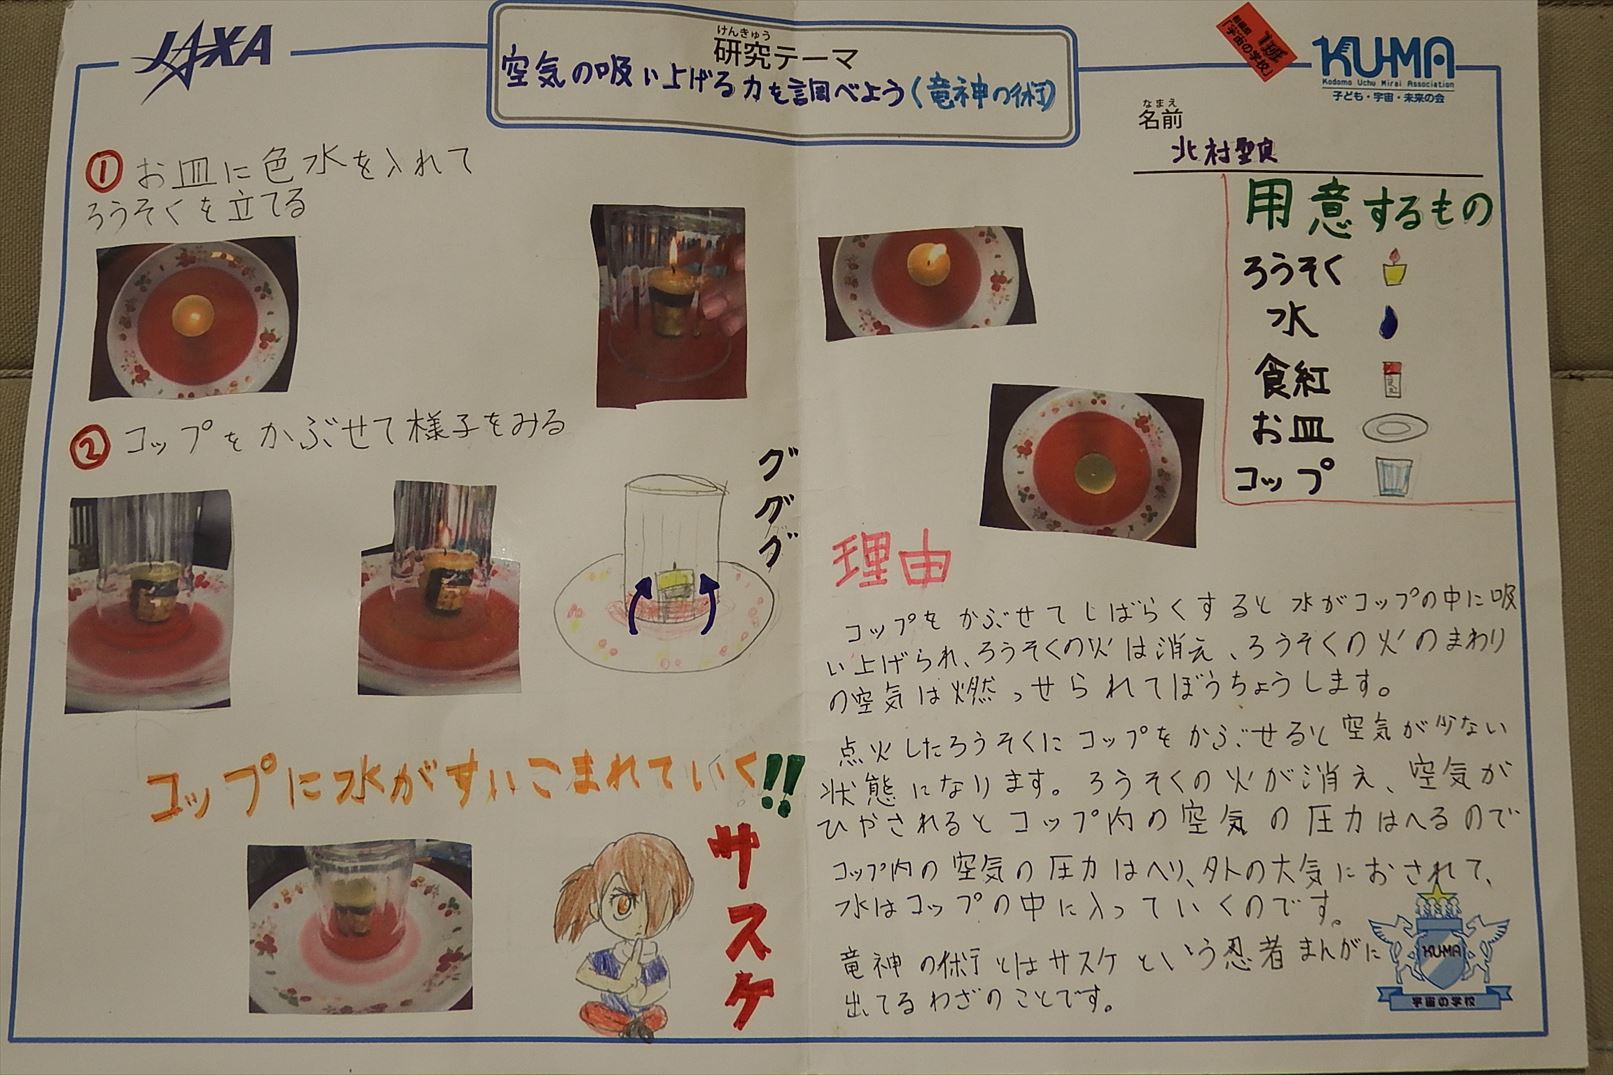 JAXA
けんきゅう
研究テーマ
空気の吸い上げる力を調べよう(竜神の術)
「宇宙の学校」
KU-MA
Kodomo Uchu Mirai Association
子ども・宇宙・未来の会
なまえ
名前
北村聖良
① お皿に色水を入れて
ろうそくを立てる
② コップをかぶせて様子をみる
ググググ
コップに水がすいこまれていく!!
サスケ
用意するもの
ろうそく
水
食紅
お皿
コップ
理由
コップをかぶせてしばらくすると水がコップの中に吸
い上げられ、ろうそくの火は消え、ろうそくの火のまわり
の空気は燃っせられてぼうちょうします。
点火したろうそくにコップをかぶせると空気が少ない
状態になります。ろうそくの火が消え、空気が
ひやされるとコップ内の空気の圧力はへるので
コップ内の空気の圧力はへり、外の大気におされて、
水はコップの中に入っていくのです。
竜神の術とはサスケという忍者まんがに
出てるわざのことです。
KU-MA
宇宙の学校